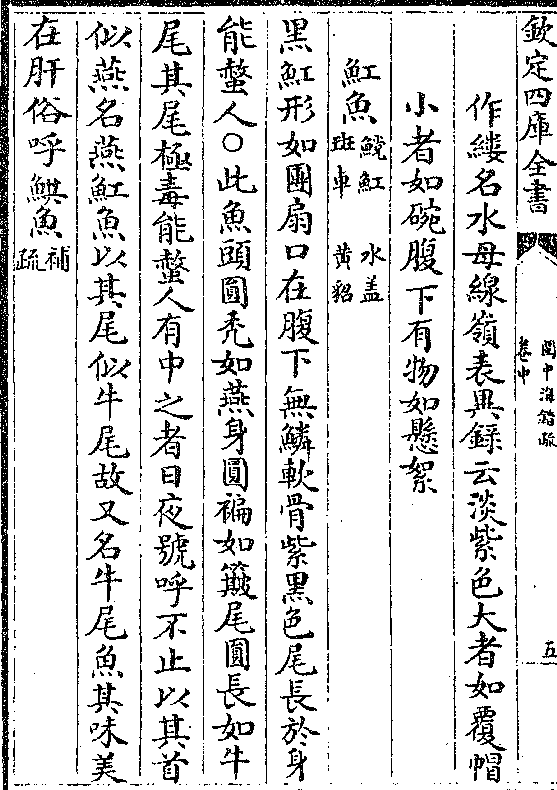 欽定四庫全書
閩中海錯疏
卷中
五
作縷名水母線嶺表異録云淡紫色大者如覆帽
小者如碗腹下有物如懸絮
魟魚 鯇魟 水盖
班車 黄貂
黑魟形如團扇口在腹下無鱗軟骨紫黑色尾長於身
能螫人○此魚頭圓禿如燕身圓褊如簸尾圓長如牛
尾其尾極毒能螫人有中之者日夜號呼不止以其首
似燕名燕魟魚以其尾似牛尾故又名牛尾魚其味美
在肝俗呼鯕魚 補
疏